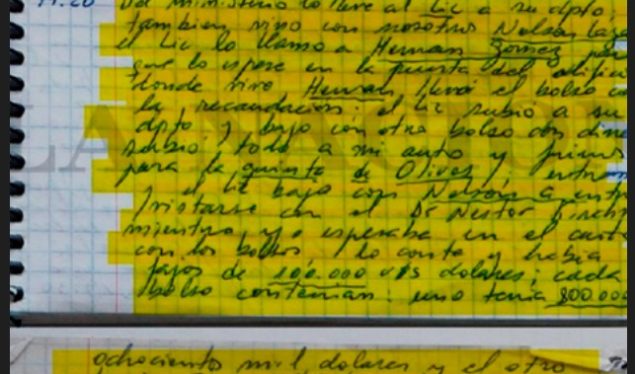 11:20 Del ministerio lo lleve al Lic a su dpto,
tambien vino con nosotros Nelson Laza
el Lic lo llamo a Hernan Gomez para
que lo espere en la puerta del edificio
donde vive Hernan, llevo el bolso con
la recaudacion; el Lic subio a su
dpto y bajo con otro bolso con dine
subio todo a mi auto y fuimos
para la quinta de Olivos; entra
y el Lic bajo con Nelson a
con el Dr Nestor
mientras yo esperaba en el auto
con los bolsos lo conte y habia
fajos de 100.000 u$s dolares; cada
bolso contenian: uno tenia 800.000
ochocientos mil dolares y el otro
LA NACION